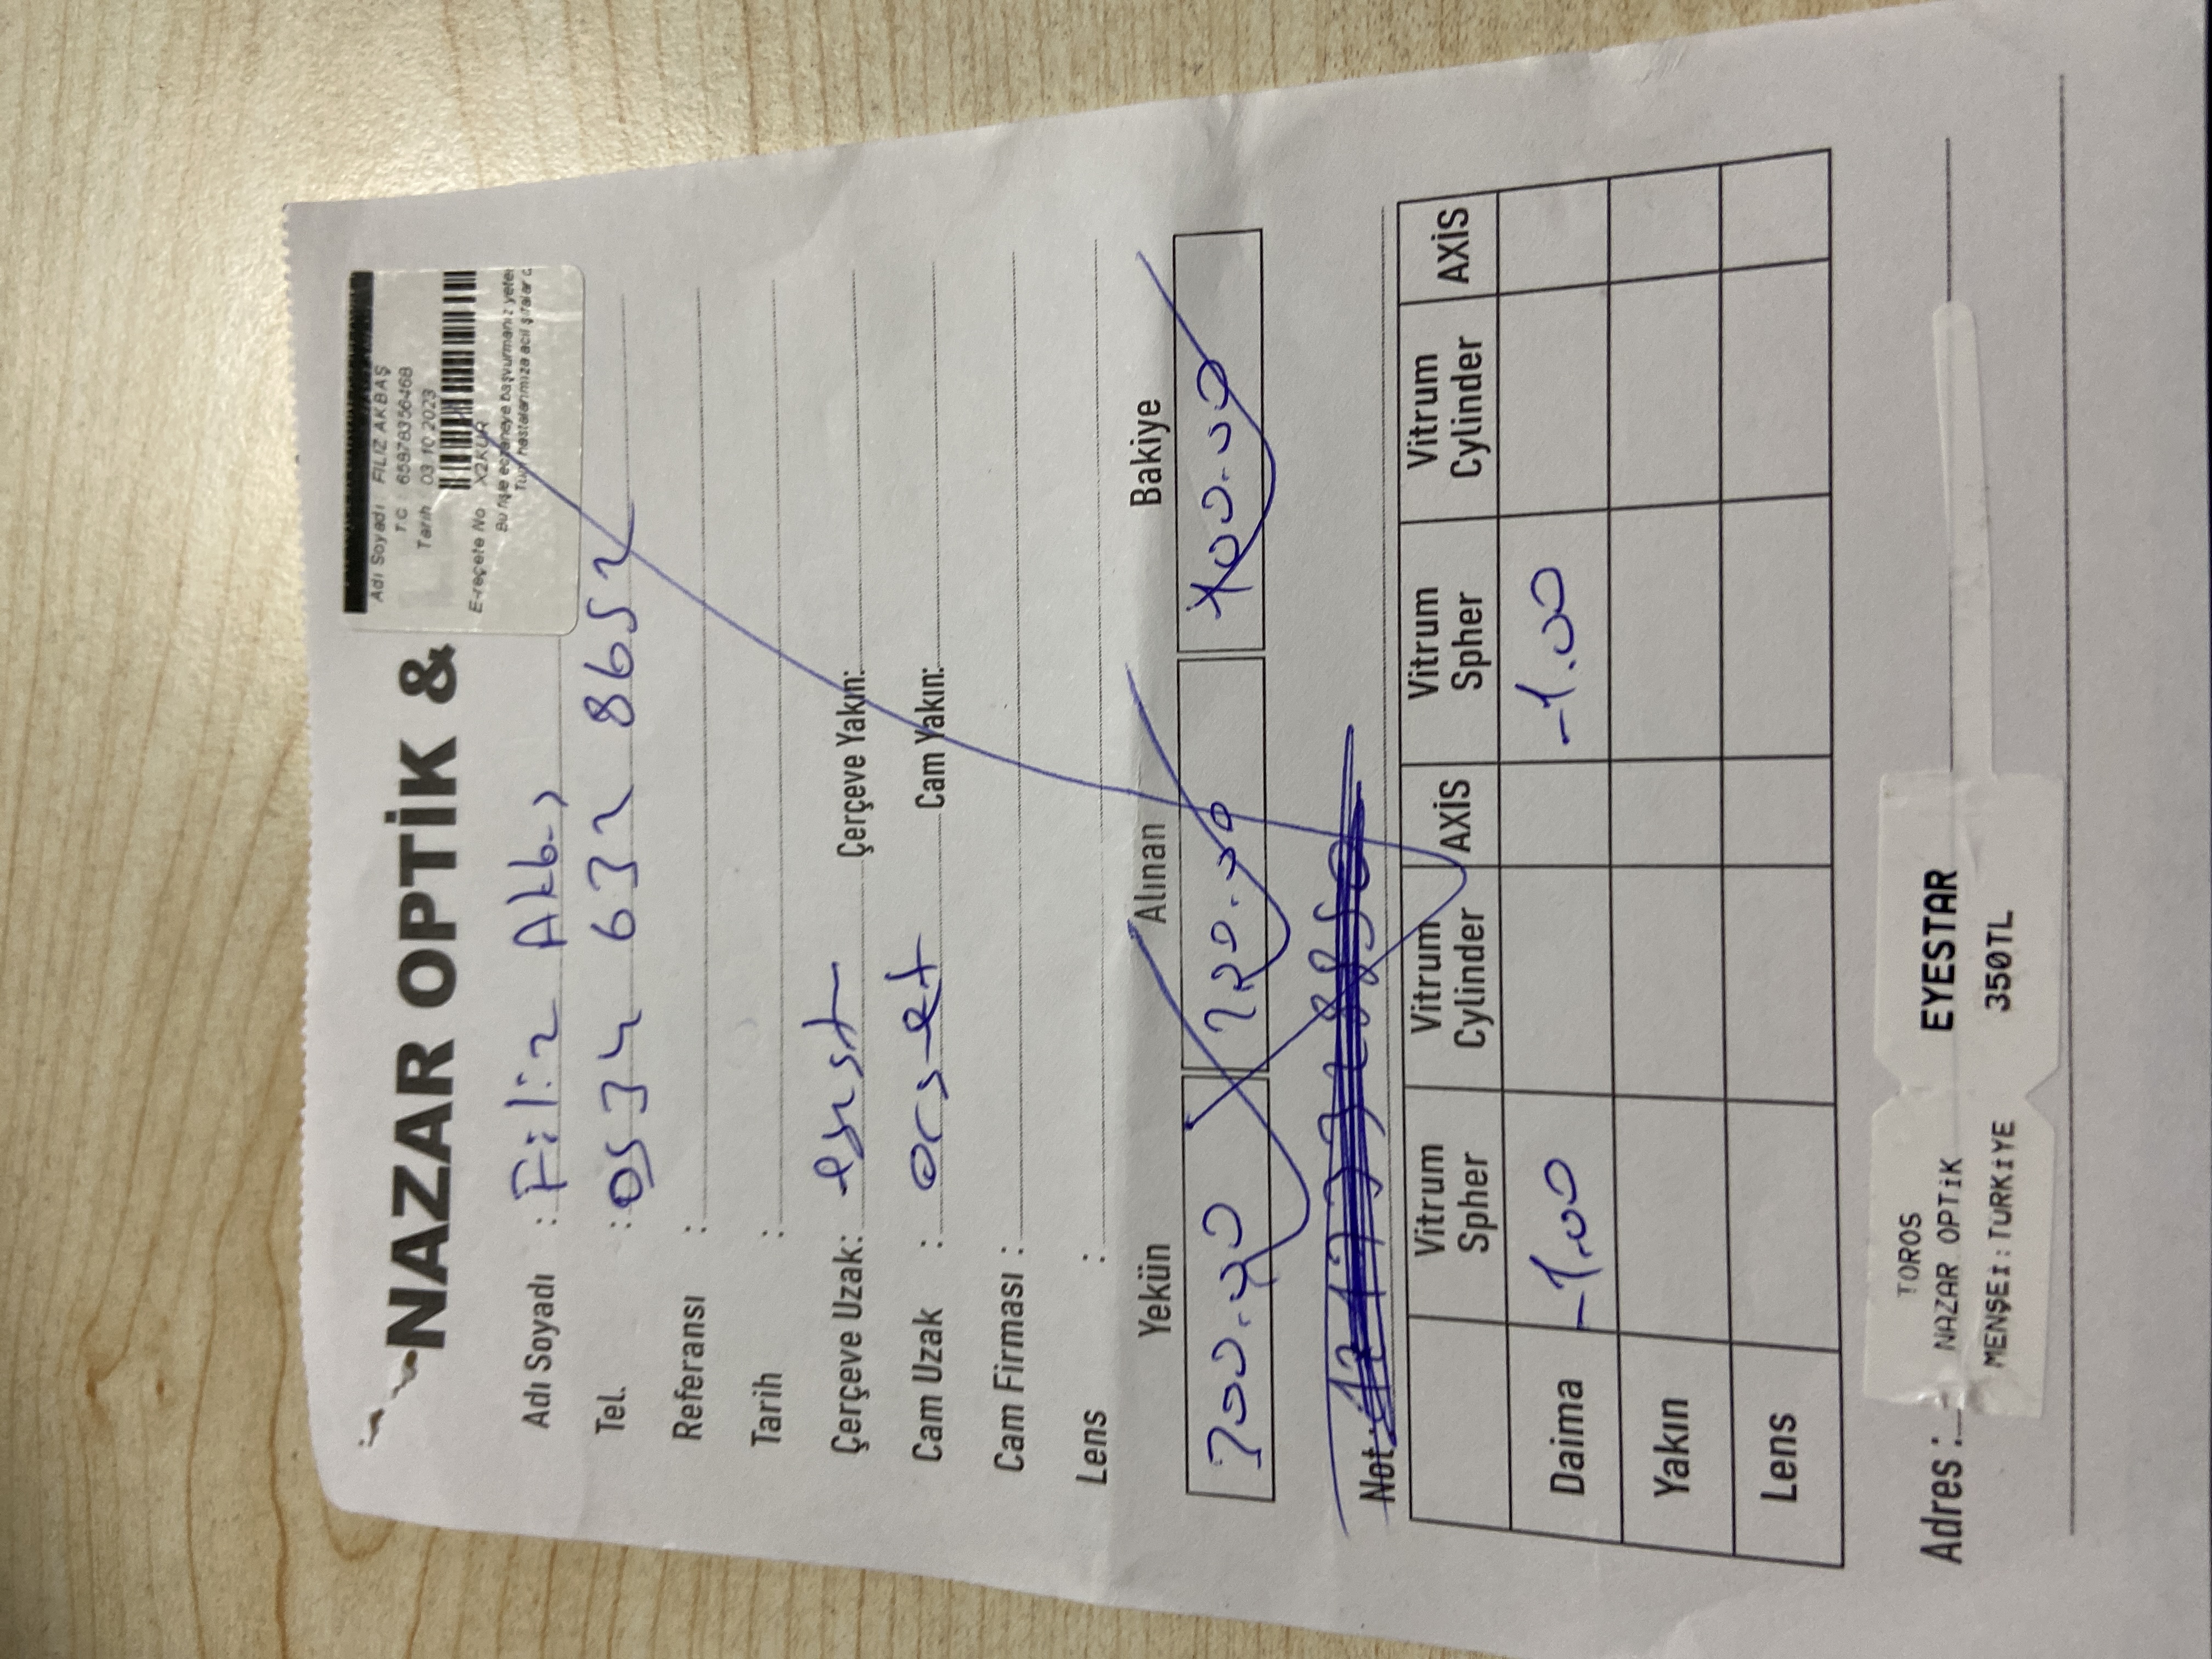 NAZAR OPTİK &
Adı Soyadı : FILIZ AKBAŞ
TC : 65878356468
Tarih 03.10.2023
E-reçete No X2KUR
Bu fişle eczaneye başvurmanız yeter
Tüm hastalarımıza acil şifalar d
Adı Soyadı : Filiz Akbaş
Tel. : 0534 632 8652
Referansı :
Tarih :
Çerçeve Uzak: Çerçeve Yakın:
Cam Uzak : Cam Yakın:
Cam Firması :
Lens :
Yekün Alınan Bakiye
300.00 200.00 100.00
Not :
Vitrum Spher Vitrum Cylinder AXİS Vitrum Spher Vitrum Cylinder AXİS
Daima -1.00 -1.00
Yakın
Lens
Adres :
TOROS
NAZAR OPTİK
MENŞEİ:TÜRKİYE
EYESTAR
350TL